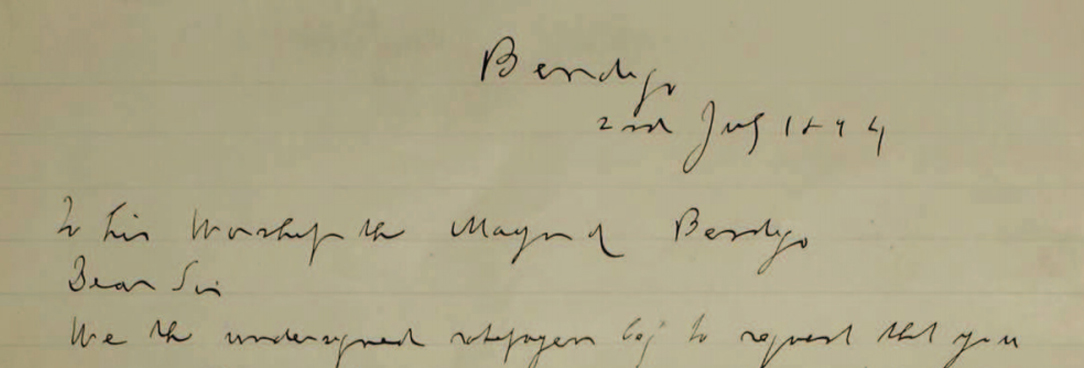 Bendigo
2nd July 1894
To his Worship the Mayor of Bendigo
Dear Sir
We the undersigned ratepayers beg to request that you